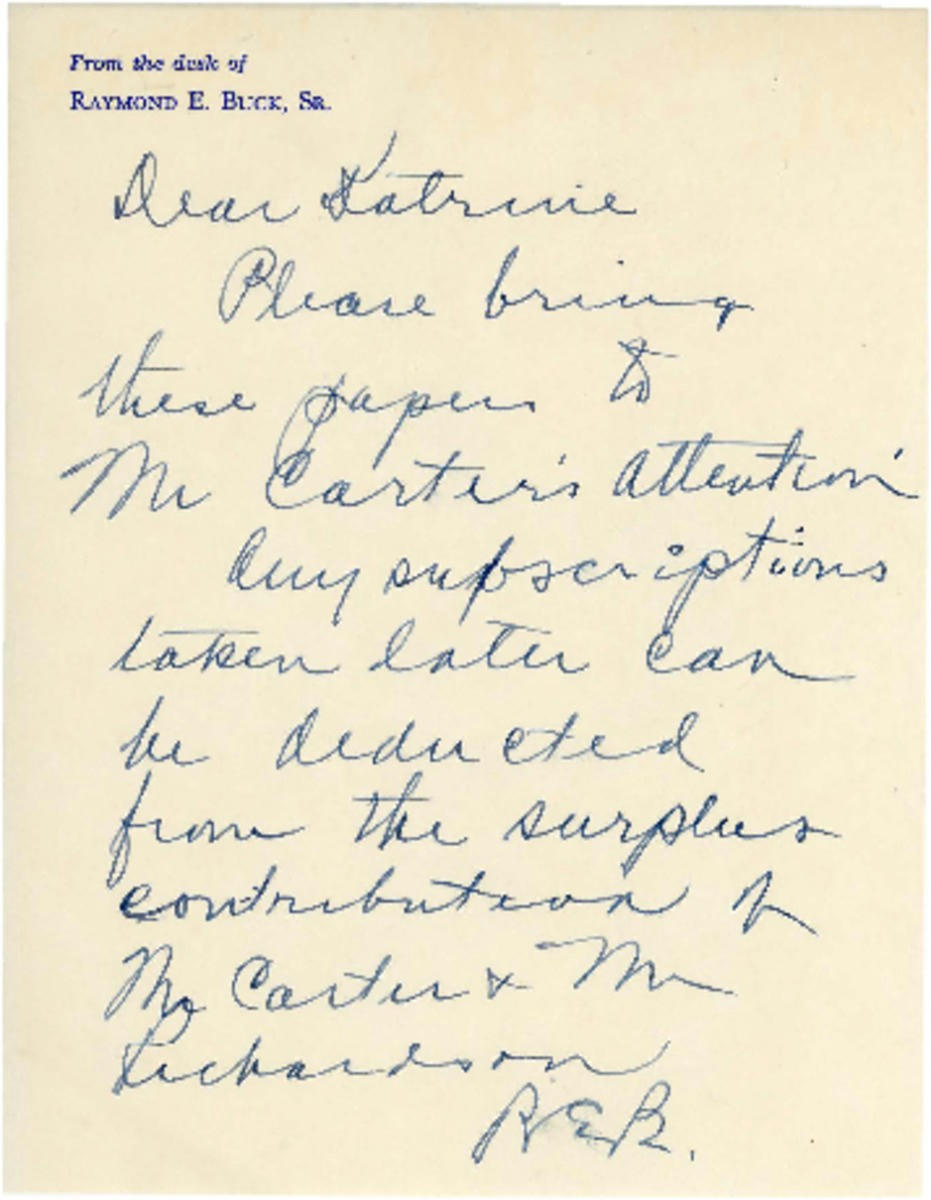 From the desk of
RAYMOND E. BUCK, SR.
Dear Katrine
Please bring
these papers to
Mr Carter's attention
Any subscriptions
taken later can
be deducted
from the surplus
contribution of
Mr Carter & Mr
Richardson
R E B.